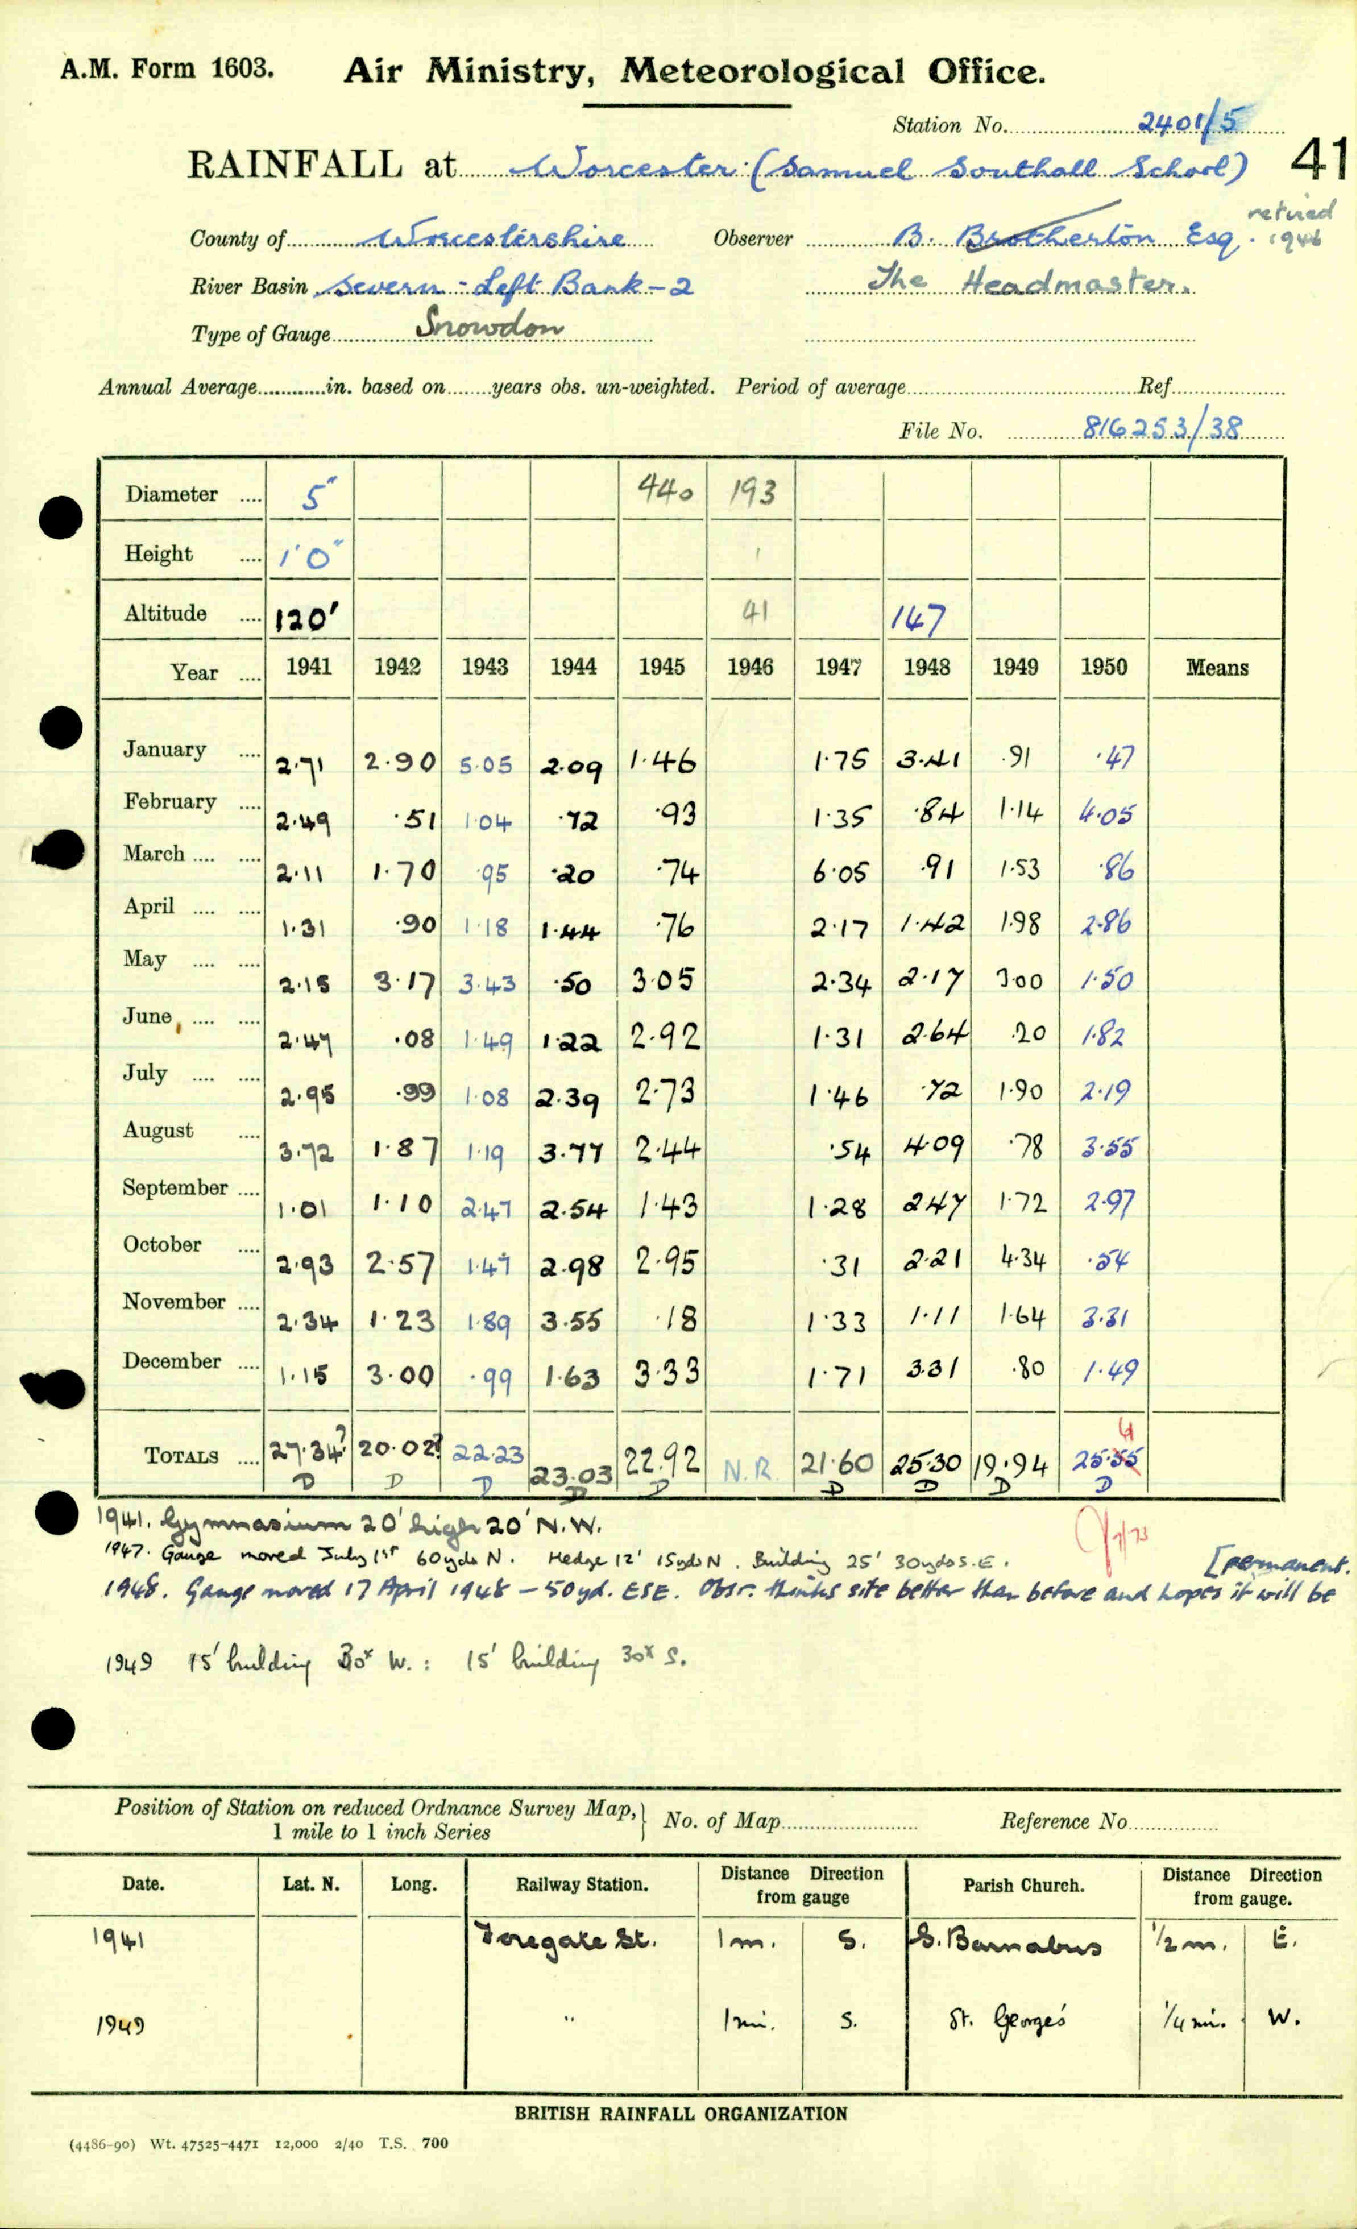 A.M. Form 1603. Air Ministry, Meteorological Office.
Station No. 2401/5
RAINFALL at Worcester (Samuel Southall School) 41
retired
County of Worcestershire Observer B. Brotherton Esq. 1946
River Basin Severn - Left Bank - 2 The Headmaster.
Type of Gauge Snowdon
Annual Average............in. based on........years obs. un-weighted. Period of average.......... Ref..........
File No. 816253/38
Diameter .... 5" 440 193
Height .... 1'0" 1
Altitude .... 120' 41 147
Year .... 1941 1942 1943 1944 1945 1946 1947 1948 1949 1950 Means
January .... 2.71 2.90 5.05 2.09 1.46 1.75 3.41 .91 .47
February .... 2.49 .51 1.04 .72 .93 1.35 .84 1.14 4.05
March .... .... 2.11 1.70 .95 .20 .74 6.05 .91 1.53 .86
April .... .... 1.31 .90 1.18 1.44 .76 2.17 1.42 1.98 2.86
May .... .... 2.15 3.17 3.43 .50 3.05 2.34 2.17 3.00 1.50
June .... .... 2.47 .08 1.49 1.22 2.92 1.31 2.64 .20 1.82
July .... .... 2.95 .99 1.08 2.39 2.73 1.46 .72 1.90 2.19
August .... 3.72 1.87 1.19 3.77 2.44 .54 4.09 .78 3.55
September .... 1.01 1.10 2.47 2.54 1.43 1.28 2.47 1.72 2.97
October .... 2.93 2.57 1.47 2.98 2.95 .31 2.21 4.34 .54
November .... 2.34 1.23 1.89 3.55 .18 1.33 1.11 1.64 3.31
December .... 1.15 3.00 .99 1.63 3.33 1.71 3.31 .80 1.49
61
TOTALS .... 27.34? 20.02? 22.23 23.03 22.92 N.R. 21.60 25.30 19.94 25.55
D D D D D D D D D
1941. Gymnasium 20' high 20' N.W.
7/73
1947. Gauge moved July 1st 60yds N. Hedge 12' 15yds N. Building 25' 30yds S.E. [permanent.
1948. Gauge moved 17 April 1948 - 50yd. ESE. Obsr. thinks site better than before and hopes it will be
1949 15' building 30x W.: 15' building 30x S.
Position of Station on reduced Ordnance Survey Map, } No. of Map.......... Reference No..........
1 mile to 1 inch Series
Date. Lat. N. Long. Railway Station. Distance Direction from gauge Parish Church. Distance Direction from gauge.
1941 Foregate St. 1m. S. S. Barnabus 1/2 m. E.
1949 " 1 mi. S. St. George's 1/4 mi. W.
BRITISH RAINFALL ORGANIZATION
(4486-90) Wt. 47525-4471 12,000 2/40 T.S. 700